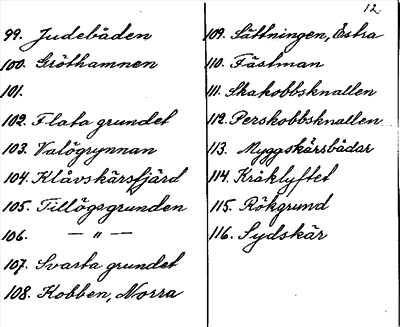 12
99. Judebåden
100. Gröthamnen
101.
102. Flata grundet
103. Valögrynnan
104. Klåvskärsfjärd
105. Tillögsgrunden
106. — " —
107. Svarta grundet
108. Kobben, Norra
109. Sättningen, Estra
110. Fästman
111. Skakobbsknallen
112. Perskobbsknallen
113. Myggskärsbådar
114. Kråklyftet
115. Rökgrund
116. Sydskär